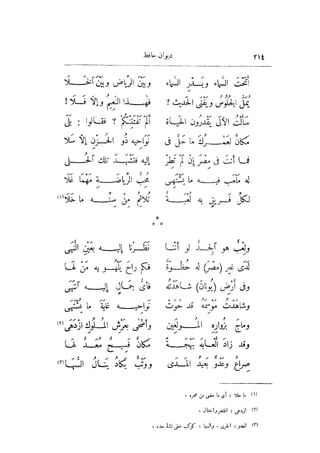 ٢١٤
ديوان حافظ
أتحت السماء وبدر السماء وبين الرياض وبين الخلا
يمل الجلوس ويفنى الحديث ؟ فهذا النعيم وإلا فلا !
سألت الألى يقدرون الحياة ألم تفتتكم ؟ فقالوا : بلى
مكان لعمرك ما حل فى نواحيه ذو الحزن إلا سلا
فما أنت فى مصر إن لم تطر إليه فتشهد تلك الحلى
به ملعب فيه ما يشتهى محب الرياضة مهما غلا
لكل فريق به لعبة تلائم من سنه ما خلا (١)
* *
ولعب هو الجد لو أننا نظرنا إليه بعين النهى
لدى غير (مصر) له حظوة فكم راح يلهو به من لها
وفى أرض (يونان) شاهدته فأى جمال إليه انتهى
وشاهدت موسمه قد حوت نواحيه غاية ما يشتهى
وماج بزواره المولعين وأضحى بعرش الملوك ازدهى (٢)
وقد زاد ألعابه بهجة مكان فسيح معد لها
صراع وعدو بعيد المدى ووثب يكاد ينال السها (٣)
(١) ما خلا : أى ما مضى من عمره .
(٢) ازدهى : افتخر واختال .
(٣) العدو : الجرى . والسها : كوكب خفى